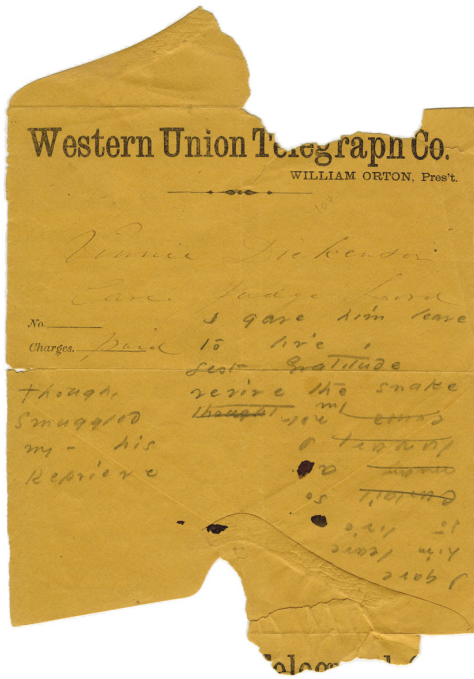 Western Union Telegraph Co.
WILLIAM ORTON, Pres't.
Vinnie Dickenson
Care Judge Lord
No.
Charges. paid
I gave him leave
to live,
lest Gratitude
revive the snake
though
smuggled
my - his
Reprieve
I gave
him leave
to live
Telegraph